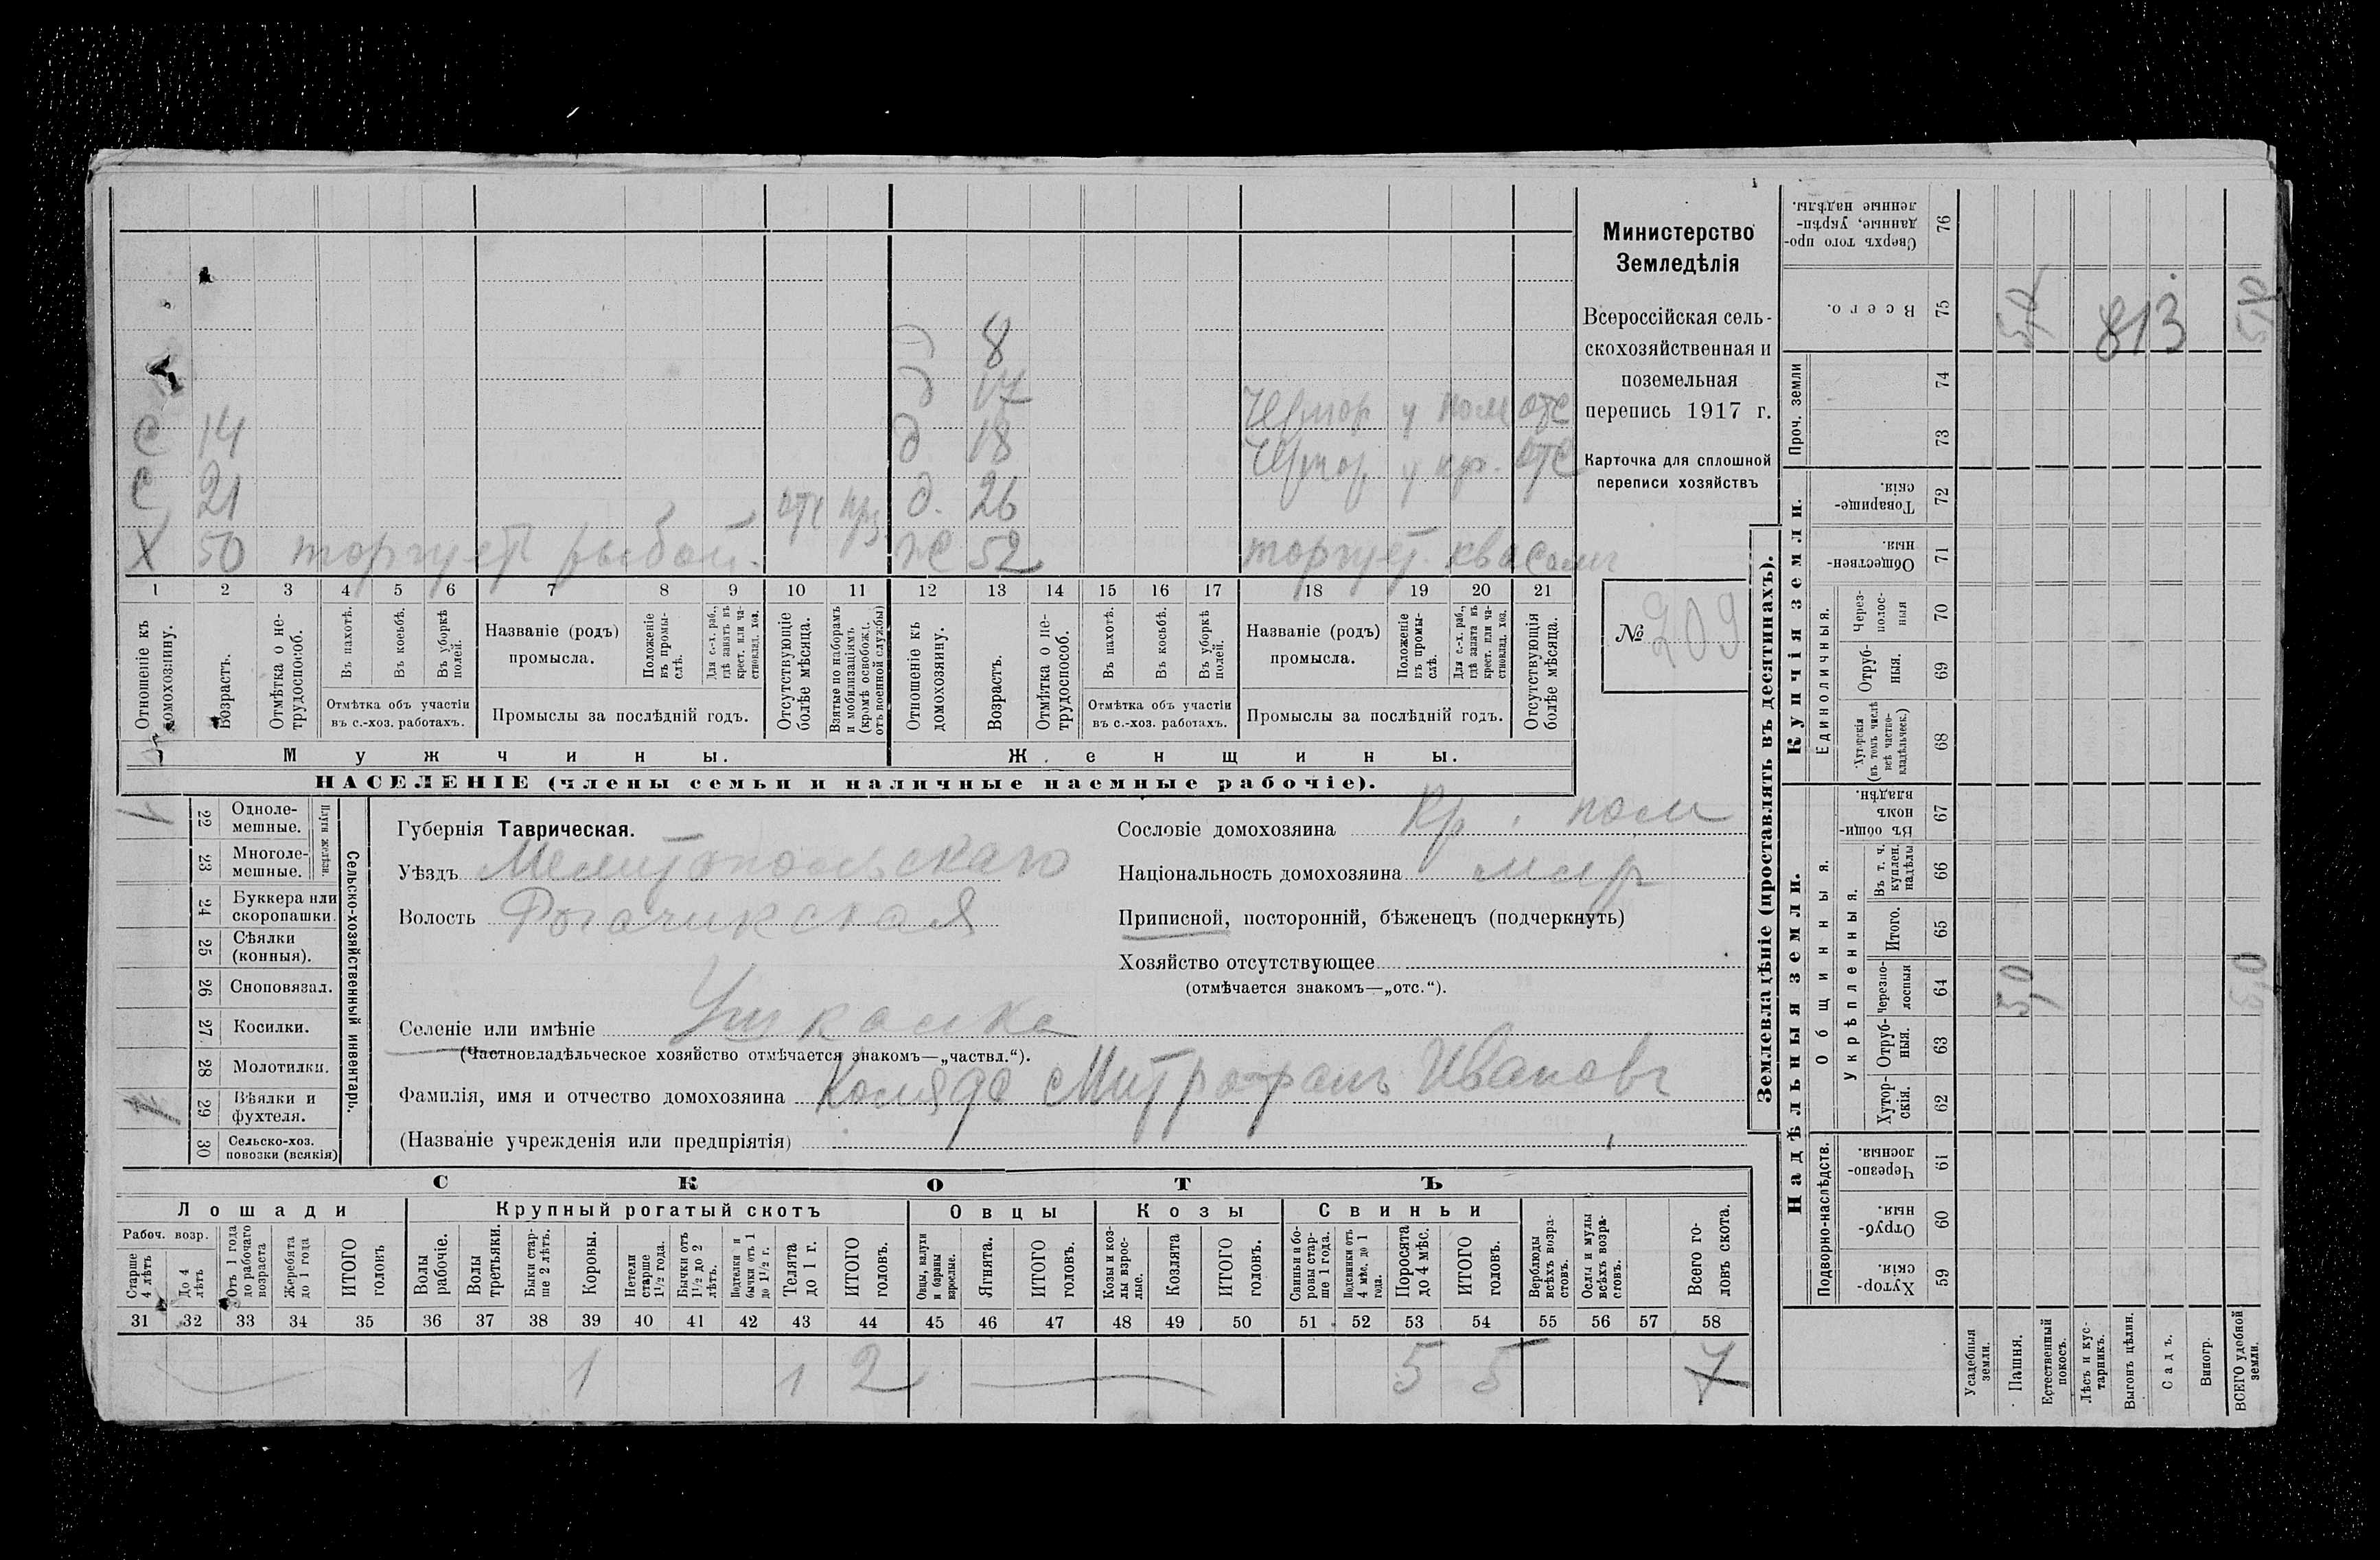 Министерство
Земледѣлія
Всероссійская сель-
скохозяйственная и
поземельная
перепись 1917 г.
Карточка для сплошной
переписи хозяйствъ
№ 209
8
д 17
С 14 д 18 у отс
С 21 отс д. 26 у кр. отс
Х 50 торгует рыбой. Ж 52 торгует квасом
1 2 3 4 5 6 7 8 9 10 11 12 13 14 15 16 17 18 19 20 21
Отношеніе къ домохозяину.
Возрастъ.
Отмѣтка о не-трудоспособ.
Въ пахотѣ.
Въ косьбѣ.
Въ уборкѣ полей.
Отмѣтка объ участіи
въ с.-хоз. работахъ.
Названіе (родъ)
промысла.
Положеніе въ промы-слѣ.
Для с.-х. раб., гдѣ занятъ въ крест. или ча-стновлад. хоз.
Промыслы за послѣдній годъ.
Отсутствующіе болѣе мѣсяца.
Взятые по наборамъ и мобилизаціямъ (кромѣ освобожд. отъ военной службы)
Отношеніе къ домохозяину.
Возрастъ.
Отмѣтка о не-трудоспособ.
Въ пахотѣ.
Въ косьбѣ.
Въ уборкѣ полей.
Отмѣтка объ участіи
въ с.-хоз. работахъ.
Названіе (родъ)
промысла.
Положеніе въ промы-слѣ.
Для с.-х. раб., гдѣ занята въ крест. или ча-стновлад. хоз.
Промыслы за послѣдній годъ.
Отсутствующія болѣе мѣсяца.
Мужчины. Женщины.
НАСЕЛЕНІЕ (члены семьи и наличные наемные рабочіе).
Сельско-хозяйственный инвентарь.
Плуги желѣзн.
1 22 Одноле-мешные.
23 Многоле-мешные.
24 Буккера или скоропашки.
25 Сѣялки (конныя).
26 Сноповязал.
27 Косилки.
28 Молотилки.
1 29 Вѣялки и фухтеля.
30 Сельско-хоз. повозки (всякія)
Губернія Таврическая.
Уѣздъ Мелитопольскаго
Волость Рогачикская
Селеніе или имѣніе Ушкалка
(Частновладѣльческое хозяйство отмѣчается знакомъ—„частвл.“).
Фамилія, имя и отчество домохозяина Коляда Митрофанъ Ивановъ
(Названіе учрежденія или предпріятія)
Сословіе домохозяина Кр.
Національность домохозяина млр
Приписной, посторонній, бѣженецъ (подчеркнуть)
Хозяйство отсутствующее
(отмѣчается знакомъ—„отс.“).
СКОТЪ
Лошади Крупный рогатый скотъ Овцы Козы Свиньи
Рабоч. возр.
Старше 4 лѣтъ
До 4 лѣтъ
Отъ 1 года до рабочаго возраста
Жеребята до 1 года
ИТОГО головъ
Волы рабочіе.
Волы третьяки.
Быки стар-ше 2 лѣтъ.
Коровы.
Нетели старше 1½ года.
Бычки отъ 1½ до 2 лѣтъ.
Подтелки и бычки отъ 1 до 1½ г.
Телята до 1 г.
ИТОГО головъ.
Овцы, валухи и бараны взрослые.
Ягнята.
ИТОГО головъ.
Козы и коз-лы взрос-лые.
Козлята
ИТОГО головъ.
Свиньи и бо-ровы стар-ше 1 года.
Подсвинки отъ 4 мѣс. до 1 года.
Поросята до 4 мѣс.
ИТОГО головъ.
Верблюды всѣхъ возра-стовъ.
Ослы и мулы всѣхъ возра-стовъ.
Всего го-ловъ скота.
31 32 33 34 35 36 37 38 39 40 41 42 43 44 45 46 47 48 49 50 51 52 53 54 55 56 57 58
1 1 2 5 5 7
Землевладѣніе (проставлять въ десятинахъ).
Купчія земли.
Надѣльныя земли.
Сверхъ того про-данные, укрѣп-ленные надѣлы. 76
Всего. 75 5,0 813 5,0
Проч. земли 74
73
Товарище-скія. 72
Обществен-ныя. 71
Единоличныя.
Через-полос-ныя 70
Отруб-ныя. 69
Хуторскія (въ томъ числѣ всѣ частно-владѣльческ.) 68
Общинныя.
Въ общи-номъ владѣн. 67
Укрѣпленныя.
Въ т. ч. куплен. надѣлы 66
Итого. 65
Черезпо-лосныя 64 5,0 5,0
Отруб-ныя. 63
Хутор-скія. 62
Подворно-наслѣдств.
Черезпо-лосныя. 61
Отруб-ныя. 60
Хутор-скія. 59
Усадебныя земли.
Пашня.
Естественный покосъ.
Лѣсъ и кус-тарникъ.
Выгонъ цѣлин.
Садъ.
Виногр.
ВСЕГО удобной земли.